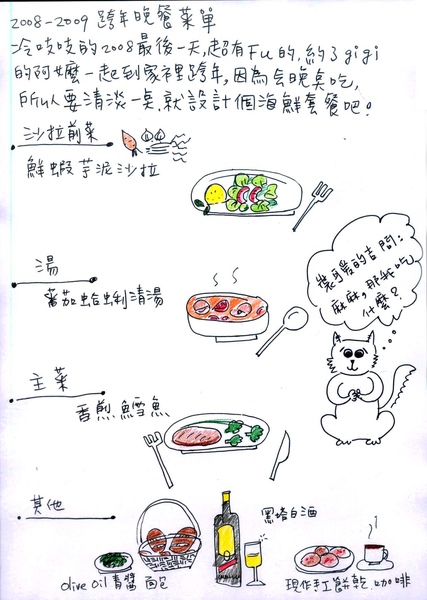 2008-2009 跨年晚餐菜單
冷吱吱的2008最後一天,超有Fu的,約了gigi
的阿嬤一起到家裡跨年,因為会晚点吃,
所以人要清淡一点.就設計個海鮮套餐吧!
沙拉前菜
鮮蝦芋泥沙拉
湯
蕃茄蛤蜊清湯
裝可愛的吉問:
麻麻,那我吃
什麼?
主菜
香煎鱈魚
其他
黑塔白酒
olive oil 青醬 麵包
現作手工餅乾 咖啡